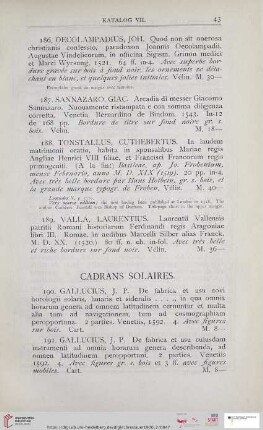 KATALOG VII. 43
186. OECOLAMPADIUS, JOH. Quod non sit onerosa
christianis confessio, paradoxon Joannis Oecolampadii.
Augustae Vindelicorum, in officina Sigism. Grimm medici
et Marci Wyrsung, 1521. 64 ff. in-4. Avec superbe bor-
dure gravée sur bois à fond noir, les ornements se déta-
chant en blanc, et quelques jolies initiales. Vélin. M. 30—
Exemplaire grand de marges avec témoins.
187. SANNAZARO GIAC. Arcadia di messer Giacomo
Sannazaro. Nuovamente ristampata e con somma diligenza
corretta. Venetia, Bernardino de Bindoni. 1543. In-12
de 168 pp. Bordure de titre sur fond noire gr. s.
bois. Vélin. M. 18—
188. TONSTALLUS, CUTHEBERTUS. In laudem
matrimonii oratio, habita in sponsalibus Mariae regis
Angliae Henrici VIII filiae, et Francisci Francorum regis
primogeniti. [A la fin:] Basileae, ap. Jo. Frobenium,
mense Februario, anno M. D. XIX (1519). 20 pp. in-4.
Avec très belle bordure par Hans Holbein, gr. s. bois, et
la grande marque typogr. de Froben. Vélin. M. 40—
189. VALLA, LAURENTIUS. Laurentii Vallensis
patritii Romani historiarum Ferdinandi regis Aragoniae
libri III. Romae, in aedibus Marcelli Silber alias Franck.
M. D. XX. (1520.) 80 ff. n. ch. in-fol. Avec très belle
et riche bordure sur fond noire. Vélin. M. 36—
CADRANS SOLAIRES.
190. GALLUCIUS, J. P. De fabrica et usu novi
horologii solaris, lunaris et sideralis . . . ., in quo omnia
horarum genera ad omnem latitudinem cernuntur et multa
alia tum ad navigationem, tum ad cosmographiam
peropportuna. 2 parties. Venetiis, 1592. 4. Avec figures
sur bois. Cart. M. 8—
191. GALLUCIUS, J. P. De fabrica et usu cuiusdam
instrumenti ad omnia horarum genera describenda, ad
omnem latitudinem peropportuni. 2 parties. Venetiis
1592. 4. Avec figures gr. s. bois et 3 ff. avec figures
mobiles. Cart. M. 8—